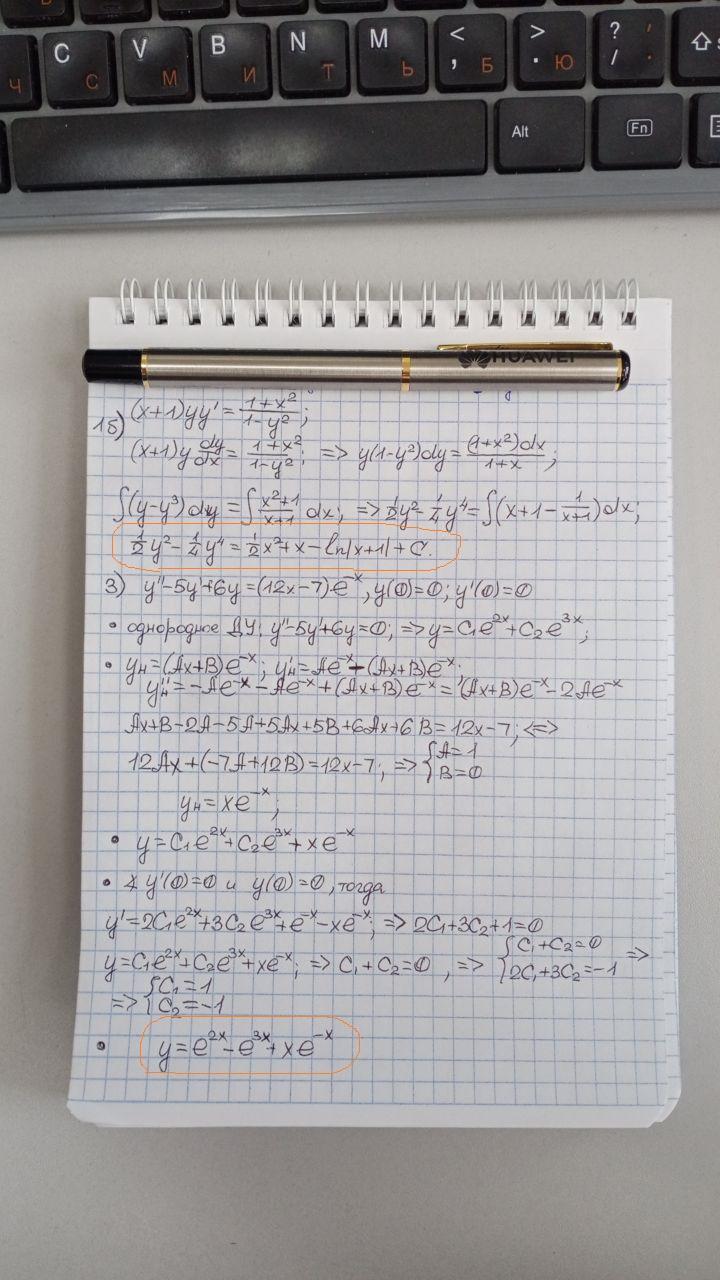 C V B N M < > ?
Ч С М И Т Ь , Б . Ю / .
Alt Fn
HUAWEI
1б) (x+1)yy' = \frac{1+x²}{1-y²};
(x+1)y \frac{dy}{dx} = \frac{1+x²}{1-y²}; => y(1-y²)dy = \frac{(1+x²)dx}{1+x};
∫(y-y³)dy = ∫\frac{x²+1}{x+1} dx; => \frac{1}{2}y² - \frac{1}{4}y⁴ = ∫(x+1-\frac{1}{(x+1)})dx;
\frac{1}{2}y² - \frac{1}{4}y⁴ = \frac{1}{2}x² + x - ln|x+1| + C.
3) y''-5y'+6y=(12x-7)e^{-x}, y(0)=0; y'(0)=0
• однородное ДУ: y''-5y'+6y=0; => y=C₁e^{2x}+C₂e^{3x};
• yн=(Ax+B)e^{-x}; y'н=Ae^{-x}-(Ax+B)e^{-x};
y''н=-Ae^{-x}-Ae^{-x}+(Ax+B)e^{-x}=(Ax+B)e^{-x}-2Ae^{-x}
Ax+B-2A-5A+5Ax+5B+6Ax+6B=12x-7; <=>
12Ax+(-7A+12B)=12x-7; => { A=1
B=0
yн=xe^{-x};
• y=C₁e^{2x}+C₂e^{3x}+xe^{-x}
• ∡ y'(0)=0 и y(0)=0, тогда
y'=2C₁e^{2x}+3C₂e^{3x}+e^{-x}-xe^{-x}; => 2C₁+3C₂+1=0
y=C₁e^{2x}+C₂e^{3x}+xe^{-x}; => C₁+C₂=0, => { C₁+C₂=0
2C₁+3C₂=-1 =>
=> { C₁=1
C₂=-1
• y=e^{2x}-e^{3x}+xe^{-x}